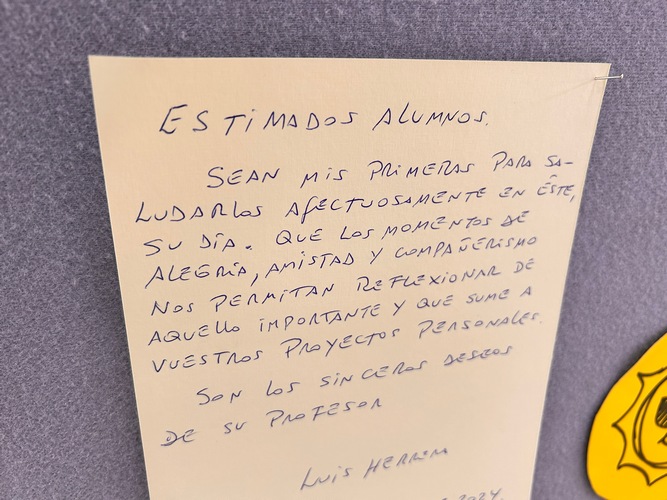 ESTIMADOS ALUMNOS.
SEAN MIS PRIMERAS PARA SA-
LUDARLOS AFECTUOSAMENTE EN ÉSTE,
SU DÍA. QUE LOS MOMENTOS DE
ALEGRÍA, AMISTAD Y COMPAÑERISMO
NOS PERMITAN REFLEXIONAR DE
AQUELLO IMPORTANTE Y QUE SUME A
VUESTROS PROYECTOS PERSONALES.
SON LOS SINCEROS DESEOS
DE SU PROFESOR
LUIS HERRERA
2024.